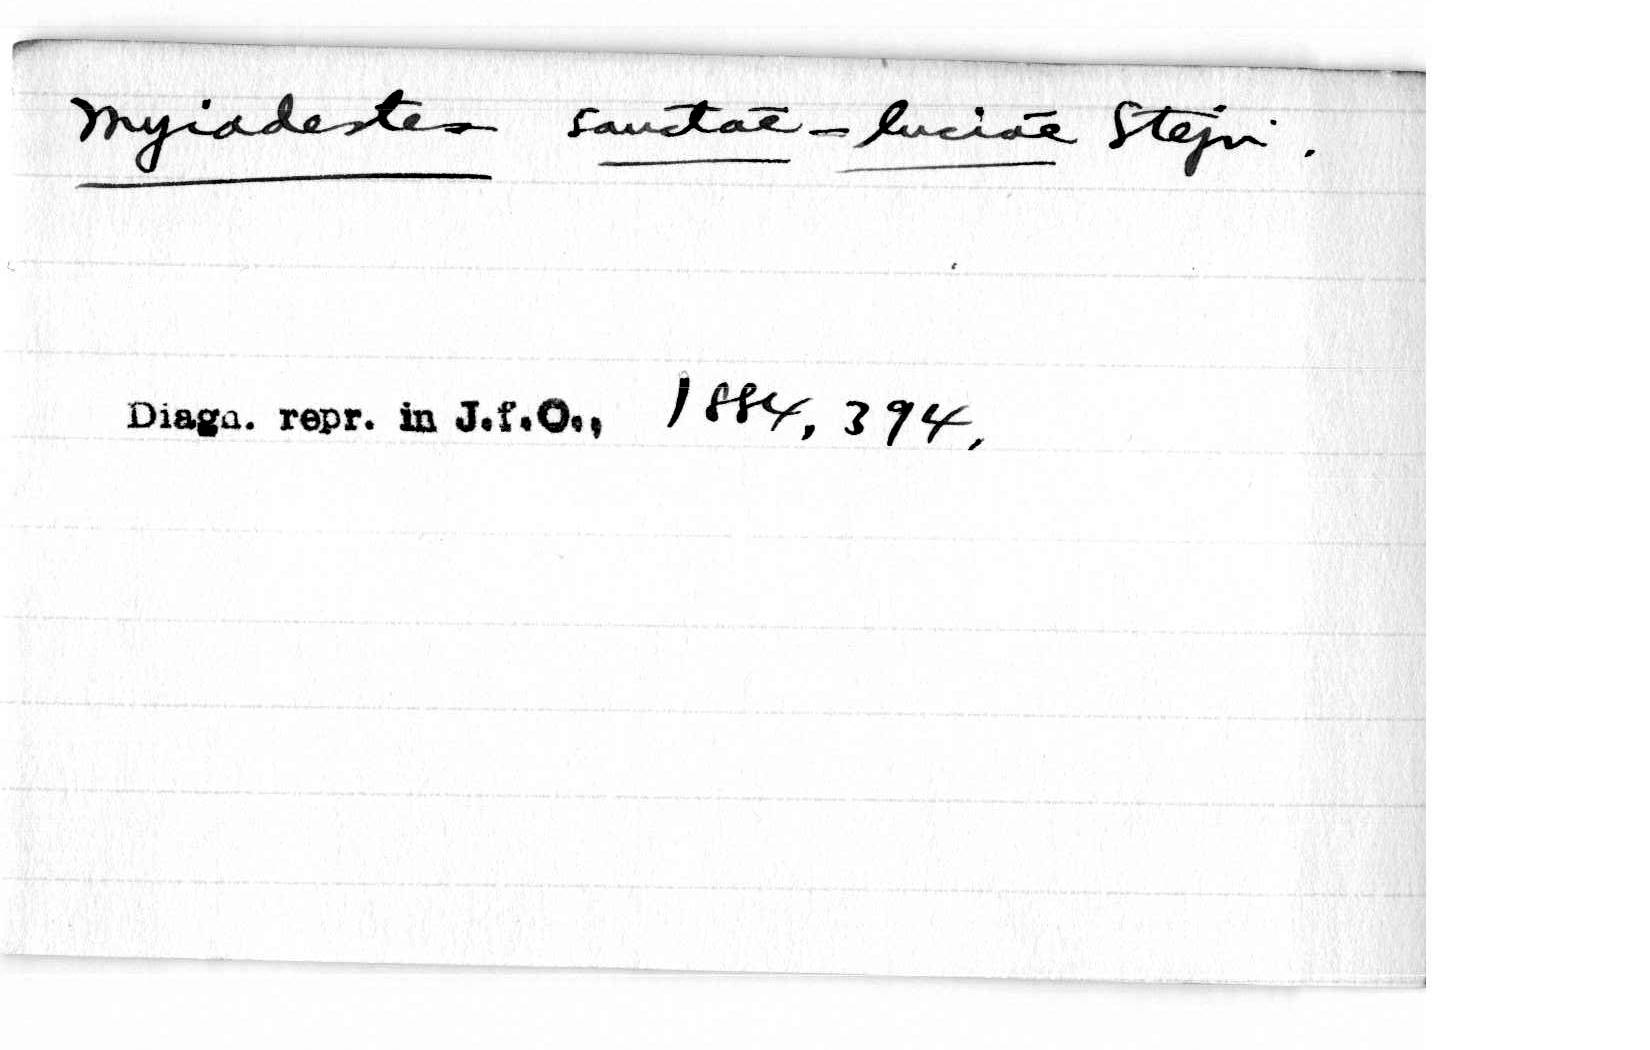 Myiadestes sanctae-luciae Stejn.
Diagn. repr. in J.f.O., 1884, 394,